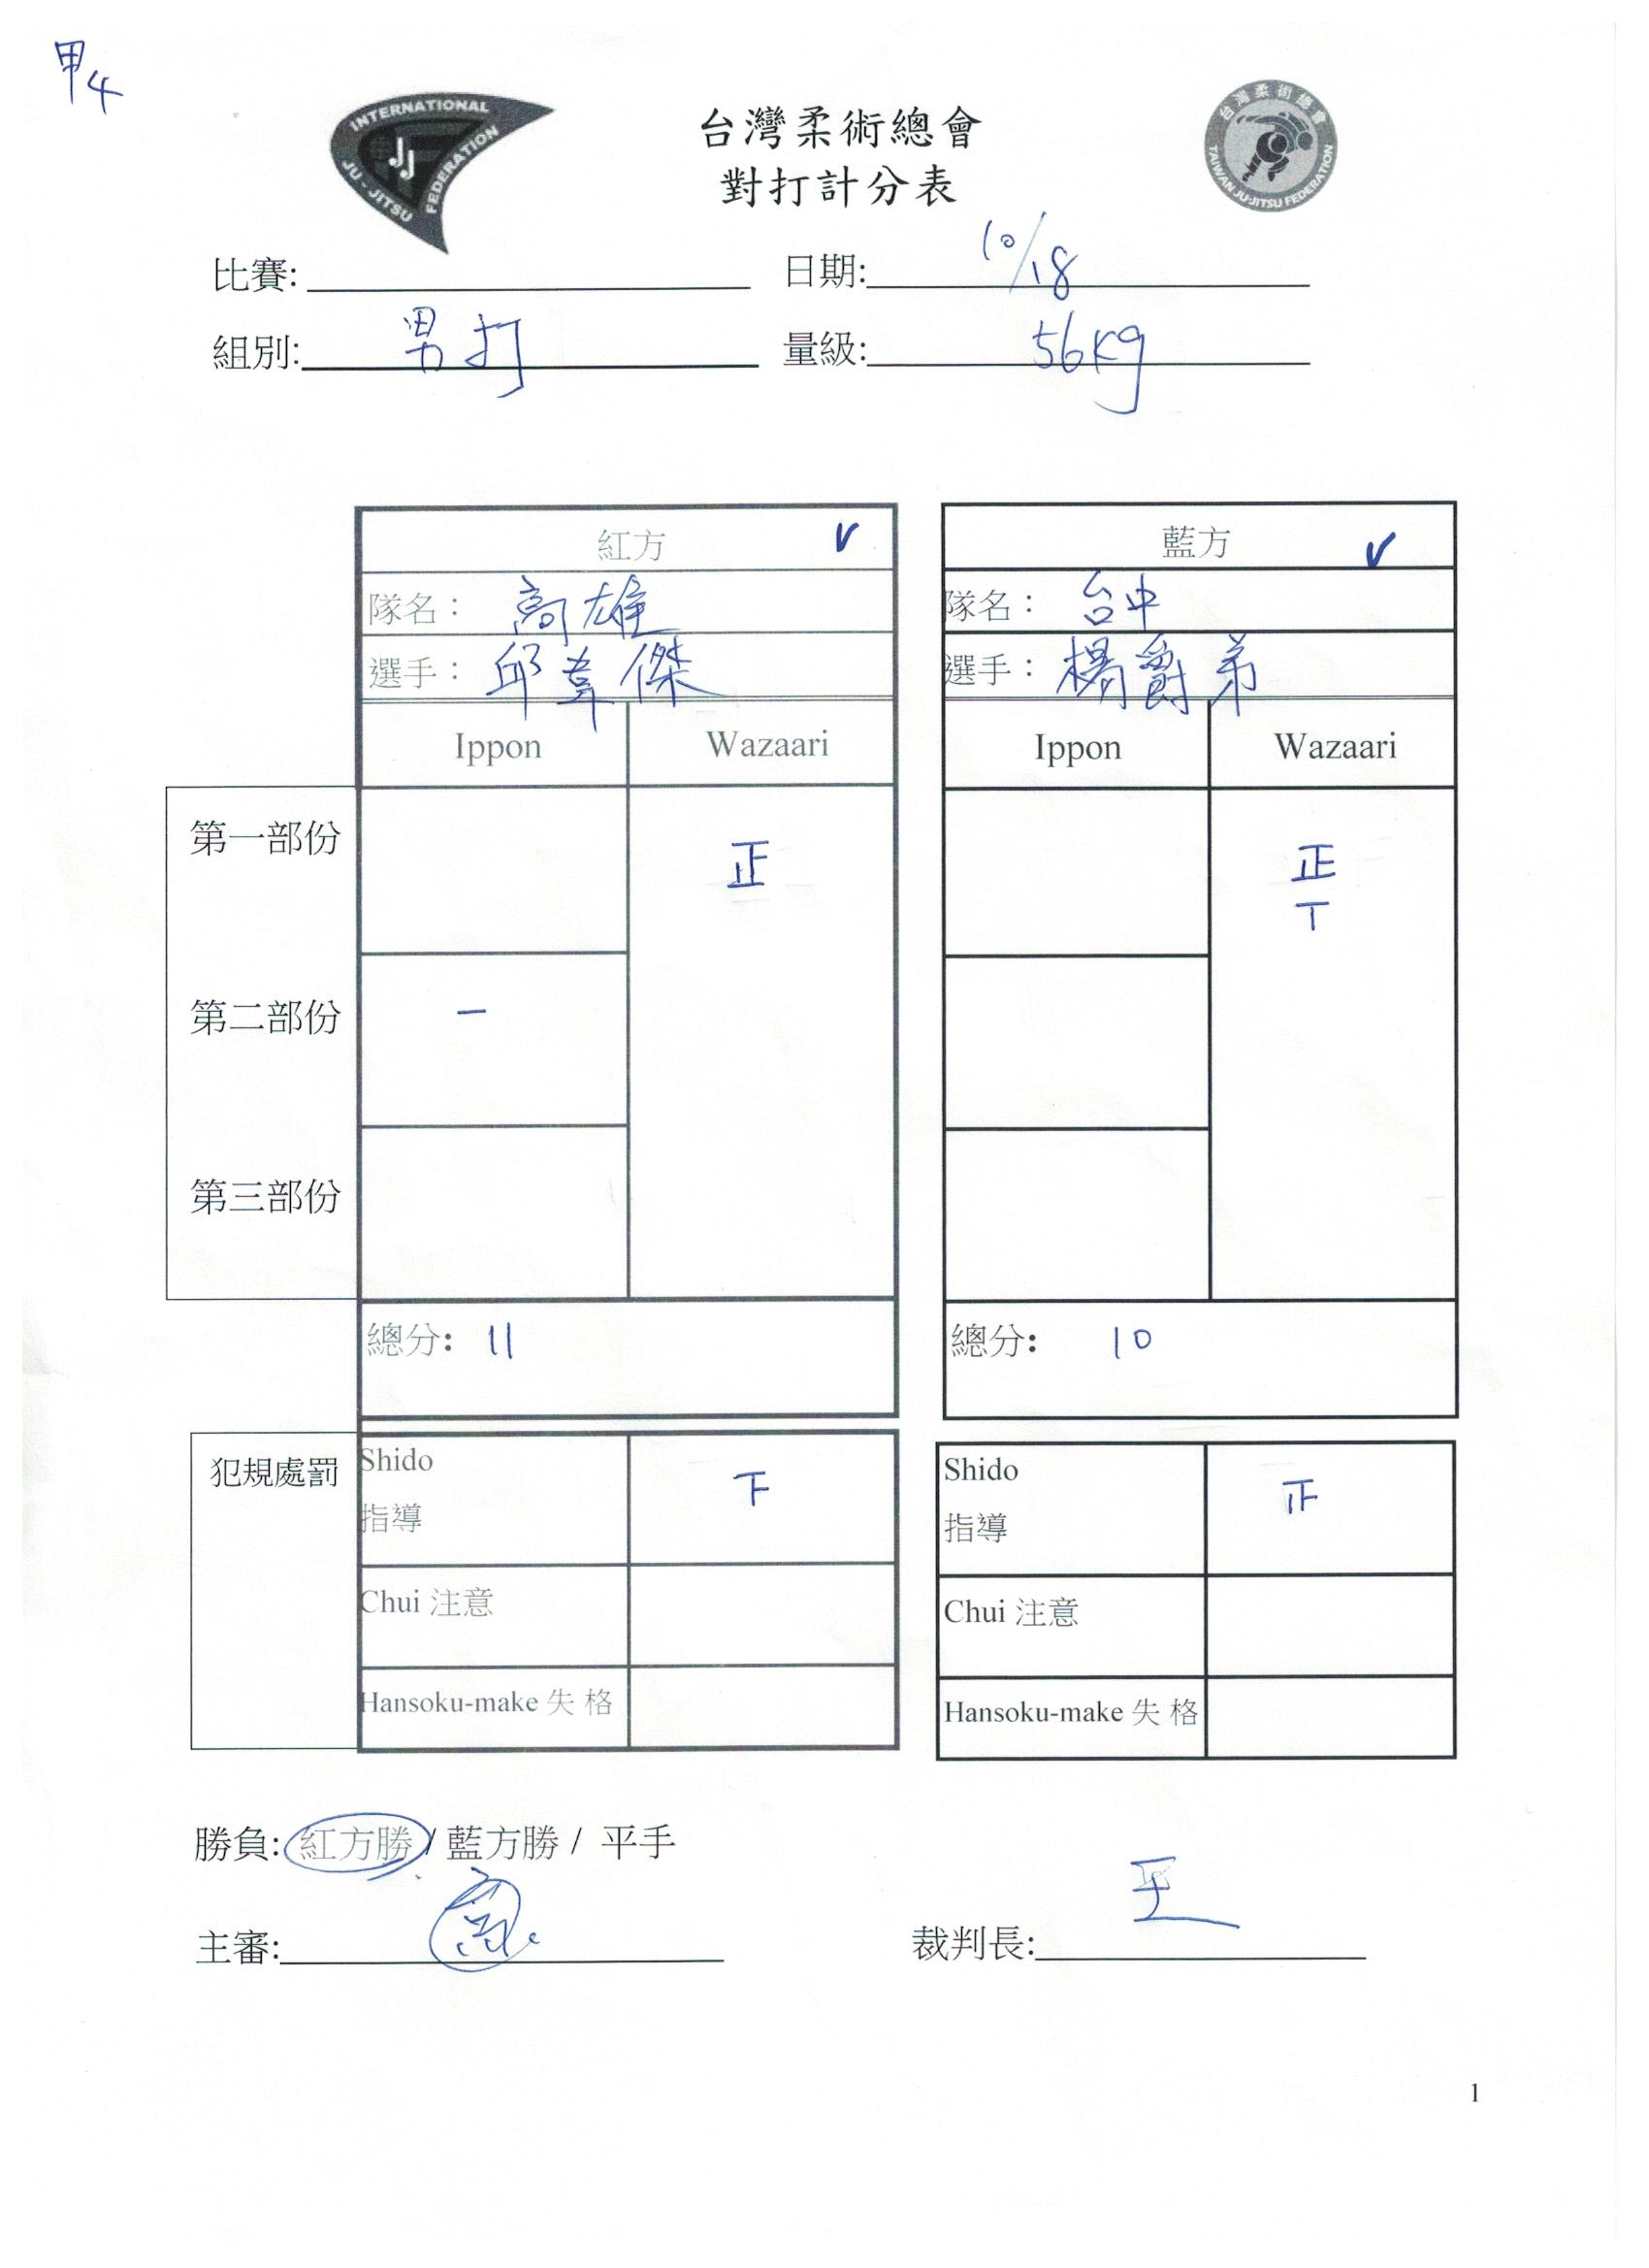 甲4
INTERNATIONAL
JU-JITSU FEDERATION
JJ
台灣柔術總會
對打計分表
台灣柔術總會
TAIWAN JU-JITSU FEDERATION
比賽: 日期: 10/18
組別: 男打 量級: 56kg
紅方 V 藍方 V
隊名: 高雄 隊名: 台中
選手: 邱韋傑 選手: 楊爵弟
Ippon Wazaari Ippon Wazaari
第一部份 正 正
丅
第二部份 一
第三部份
總分: 11 總分: 10
犯規處罰 Shido 下 Shido 正
指導 指導
Chui 注意 Chui 注意
Hansoku-make 失 格 Hansoku-make 失 格
勝負: 紅方勝 / 藍方勝 / 平手
主審: 裁判長:
1